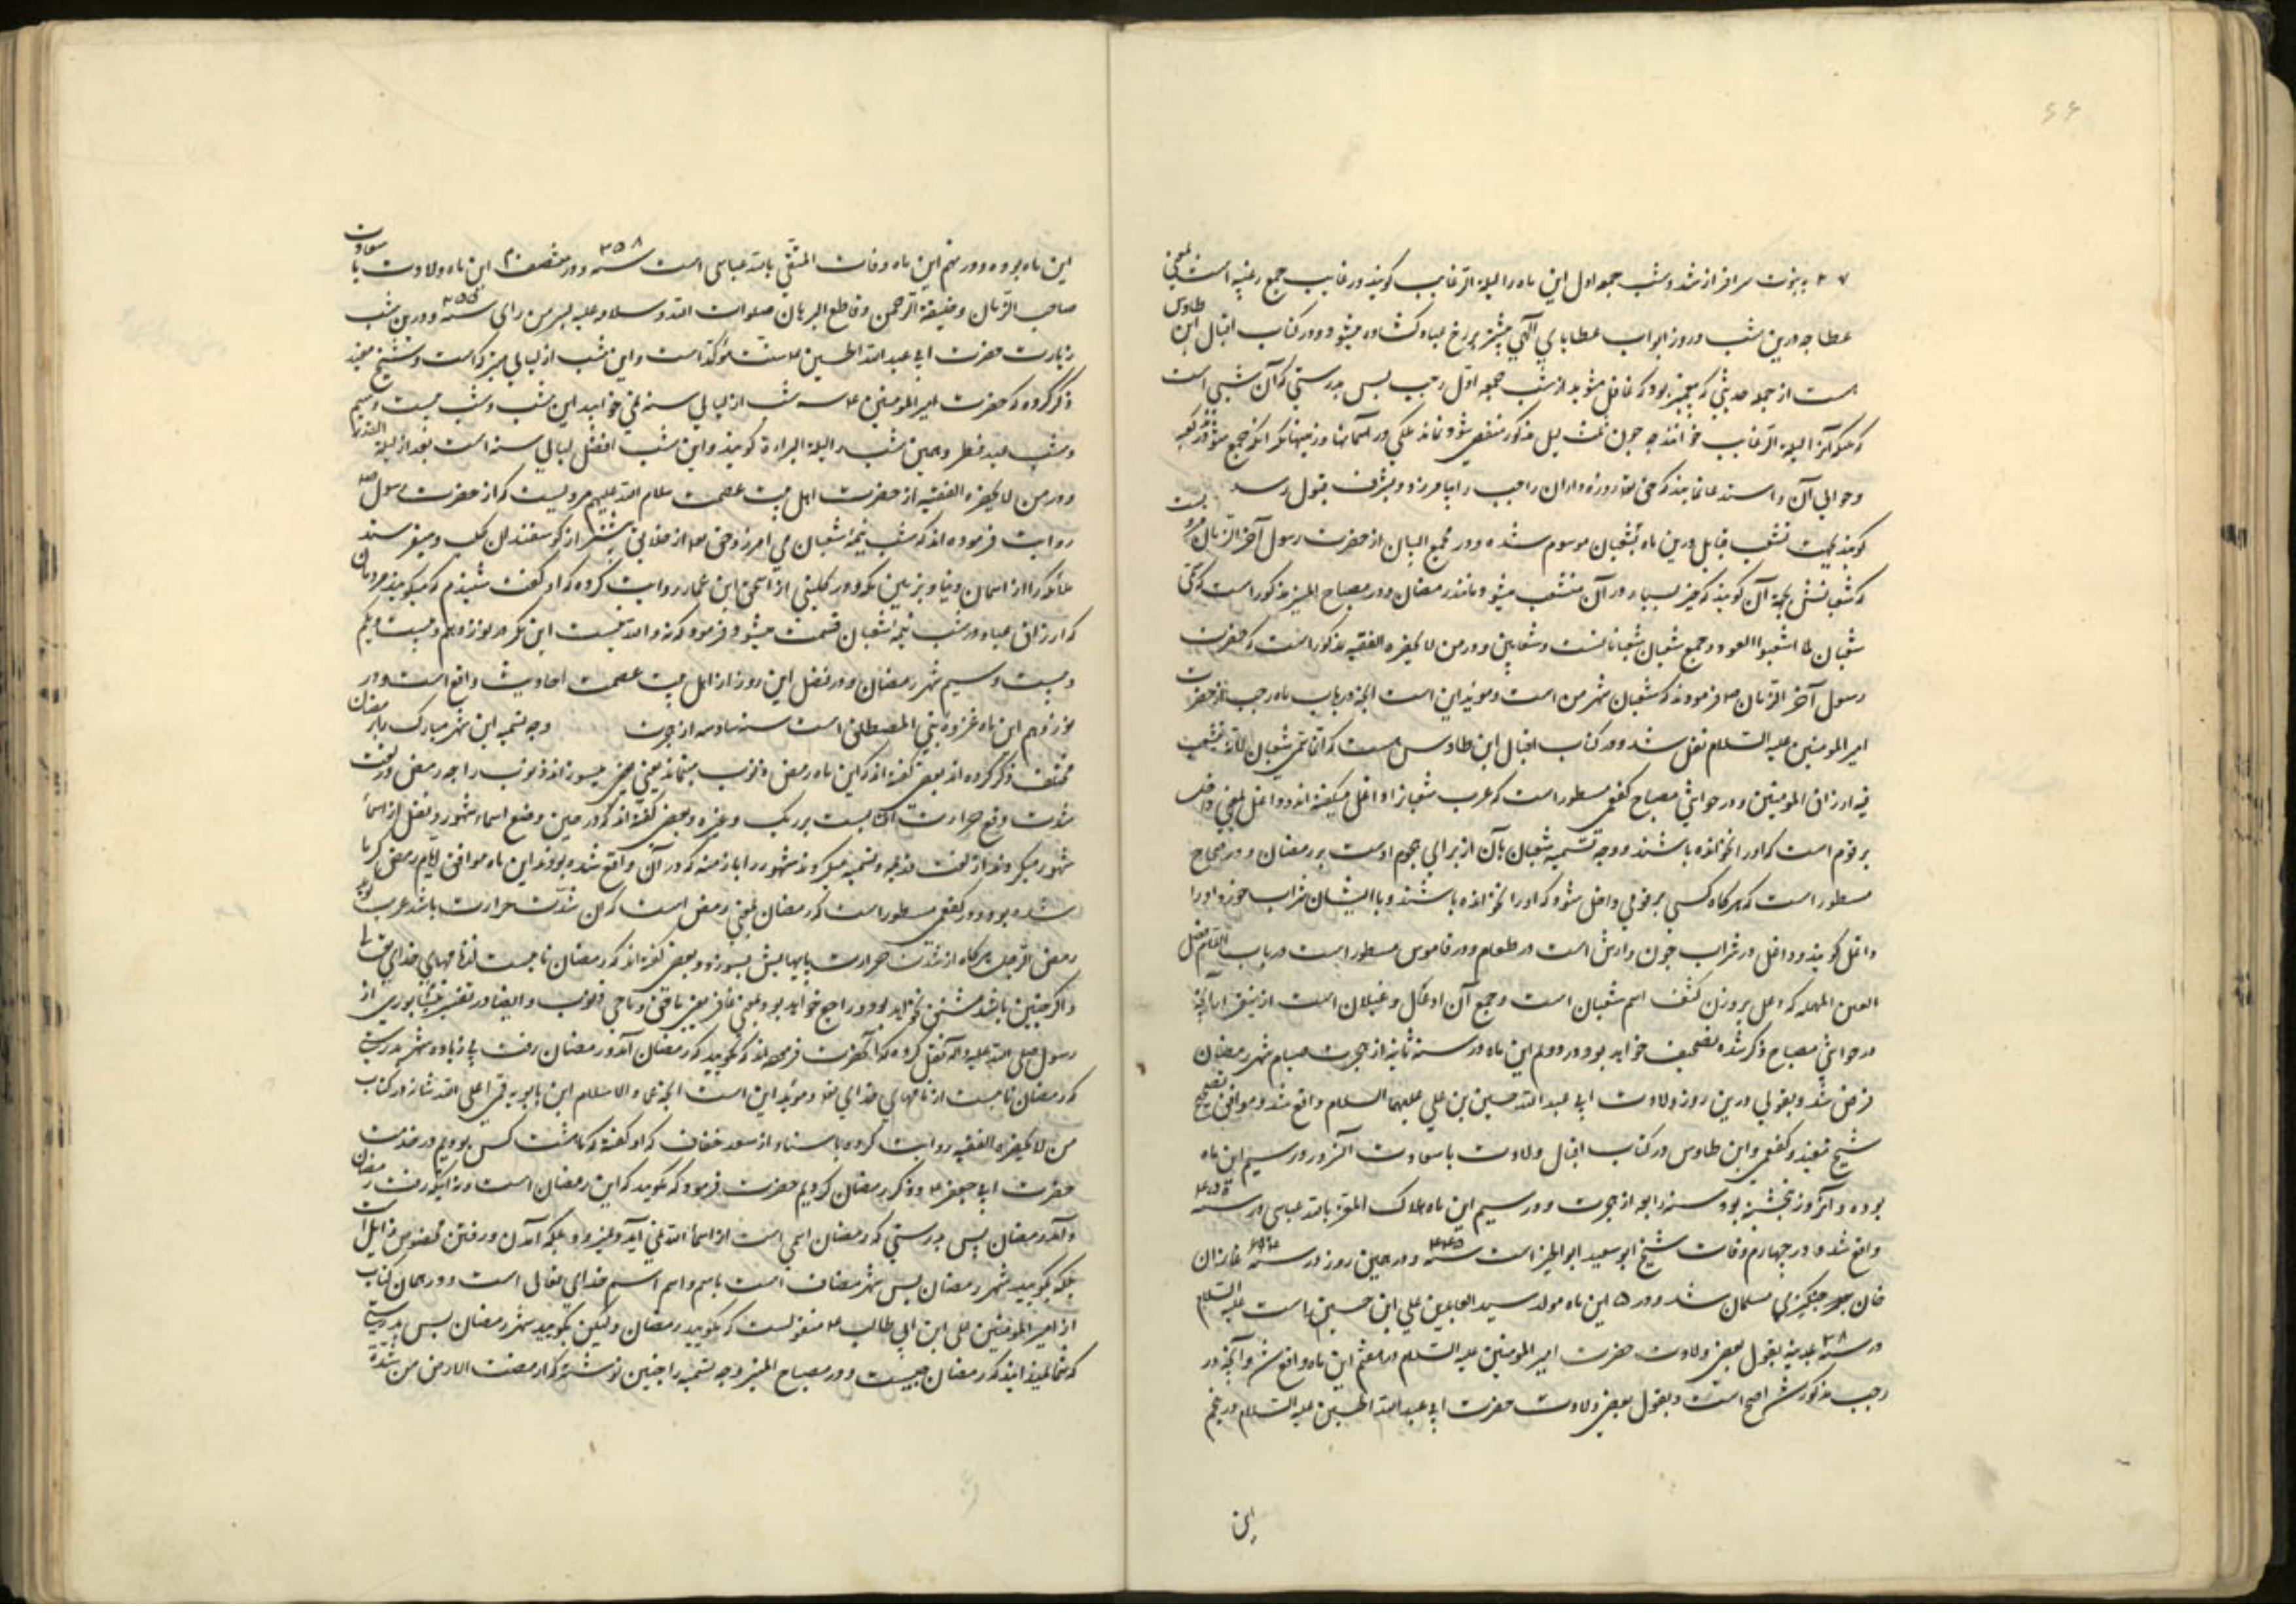 ۶۶
۲۷ به نبوت سرافراز شد و شب جمعه اول این ماه را لیلة الرغایب گویند و رغایب جمع رغیبه است بمعنی
عطا چه درین شب و روز ابواب عطایای آلهی بیشتر بر رخ عباد گشاده میشود و در کتاب اقبال ابن طاوس
هست از جمله حدیثی که پیغمبر بود که غافل مشوید از شب جمعه اول رجب پس بدرستی که آن شبی است
که ملائکه آنرا لیلة الرغایب خوانند چه چون ثلث لیل مذکور منقضی شود نماند ملکی در آسمانها و زمینها مگر آنکه جمع شود در کعبه
و حوالی آن و استدعا نمایند که حق تع روزه داران رجب را بیامرزد و بشرف قبول رسد
گویند بجهت تشعب قبایل درین ماه بشعبان موسوم شده و در مجمع البیان از حضرت رسول آخر الزمان مرویست
که شعبانش بجهة آن گویند که خیر بسیار در آن منشعب میشود مانند رمضان و در مصباح المنیر مذکور است که سمی
شعبان لما اشعبوا العود و جمع شعبان شعبانات است و شعابین و در من لا یحضره الفقیه مذکور است که حضرت
رسول آخر الزمان ص فرمودند که شعبان شهر من است و موید این است آنچه در باب ماه رجب از حضرت
امیر المومنین علیه السلام نقل شد و در کتاب اقبال ابن طاوس هست که انما سمی شعبان لانه یتشعب
فیه ارزاق المومنین و در حواشی مصباح کفعمی مسطور است که عرب شعبانرا واغل میگفته اند و واغل بمعنی داخل
بر قوم است که او را نخوانده باشند و وجه تسمیه شعبان بآن از برای هجوم اوست بر رمضان و در صحاح
مسطور است که هر گاه کسی بر قومی داخل شود که او را نخوانده باشند و با ایشان شراب خورد او را
واغل گویند و واغل در شراب چون وارش است در طعام و در قاموس مسطور است در باب اللام فصل
العین المهمله که وعل بر وزن کتف اسم شعبان است و جمع آن اوعال و وعلان است ازینقرار آنچه
در حواشی مصباح ذکر شده تصحیف خواهد بود و در دوم این ماه در سنه ثانیه از هجرت صیام شهر رمضان
فرض شد و بقولی درین روز ولادت ابی عبد الله حسین بن علی علیهما السلام واقع شد و موافق تصحیح
شیخ مفید و کفعمی و ابن طاوس در کتاب اقبال ولادت با سعادت آنسرور در سیم این ماه
بوده و آنروز پنجشنبه بود سنه رابعه از هجرت و در سیم این ماه هلاک المعتز بالله عباسی در سنه
واقع شد و در چهارم وفات شیخ ابو سعید ابو الخیر است سنه ۴۴۰ و در همین روز در سنه ۶۹۴ غازان
خان چنگیزی مسلمان شد و در ۵ این ماه مولد سید العابدین علی ابن حسین است علیه السلام
در سنه ۳۸ بمدینه بقول بعضی ولادت حضرت امیر المومنین علیه السلام در هفتم این ماه واقع شد و آنچه در
رجب مذکور شد اصح است و بقول بعضی ولادت حضرت ابی عبد الله الحسین علیه السلام در پنجم
این
این ماه بوده و در نهم این ماه وفات المتقی بالله عباسی است سنه ۳۵۸ و در منتصف این ماه ولادت با سعادت
صاحب الزمان و خلیفة الرحمن و قاطع البرهان صلوات الله و سلامه علیه بسر من رای سنه ۲۵۵ و درین شب
زیارت حضرت ابی عبد الله الحسین ع سنت مؤکد است و این شب از لیالی متبرکه است و شیخ مفید
ذکر کرده که حضرت امیر المومنین ع سه شب از لیالی سنه نمی خوابید این شب و شب بیست و سیم
و شب عید فطر و همین شب را لیلة البراءة گویند و این شب افضل لیالی سنه است بعد از لیلة القدر
و در من لا یحضره الفقیه از حضرت اهل بیت عصمت سلام الله علیهم مرویست که از حضرت رسول ص
روایت فرموده اند که شب نیمهٔ شعبان می آمرزد حق تع از خلایق بیشتر از گوسفندان کلب و میفرستد
ملائکه را از اسمان دنیا و بزمین مکه و در کلینی از اسحق ابن عمار روایت کرده که او گفت شنیدم که میگویند مردمان
که ارزاق عباد در شب نیمهٔ شعبان قسمت میشود فرمود که نه والله نیست این مگر در نوزدهم و بیست و یکم
و بیست و سیم شهر رمضان و در فضل این روز از اهل بیت عصمت احادیث واقع است و در
نوزدهم این ماه غزوهٔ بنی المصطلق است سنه سادسه از هجرت وجه تسمیه این شهر مبارک را برمضان
مختلف ذکر کرده اند بعضی گفته اند که این ماه رمض ذنوب مینماید یعنی میسوزاند ذنوب را چه رمض در لغت
شدت وقع حرارت آفتابست بر ریگ و غیره و بعضی گفته اند که در حین وضع اسماء شهور و نقل از اسماء
شهور میکردند از لغت قدیمه و تسمیه میکردند شهور را بازمنه که در آن واقع شده بودند این ماه موافق ایام رمض گرما
شده بود و در کفعمی مسطور است که رمضان بمعنی رمض است که آن شدت حرارت باشد عرب گوید
رمض الرجل هر گاه از شدت حرارت پایهایش بسوزد و بعضی گفته اند که رمضان نامیست از نامهای خدای تعالی
و اگر چنین باشد مشتق نخواهد بود و راجع خواهد بود بمعنی غافر یعنی ماحی ذنوب و ایضا در تفسیر نیشابوری از
رسول صلی الله علیه و آله نقل کرده که آنحضرت فرموده اند که نگویید که رمضان آمد و رمضان رفت بلکه شهر بدرستی
که رمضان نامیست از نامهای خدای تع و موید این است آنچه عماد الاسلام ابن بابویه قمی اعلی الله شانه در کتاب
من لا یحضره الفقیه روایت کرده باسناد از سعد خفاف که او گفته که ما هشت کس بودیم در خدمت
حضرت ابی جعفر ع و ذکر رمضان کردیم حضرت فرمود که نگویید که این رمضان است و نگویید که رفت رمضان
و آمد رمضان پس بدرستی که رمضان اسمی است از اسماء الله نمی آید و نمیرود بلکه آمدن و رفتن مخصوص زایل است
بلکه بگویید شهر رمضان پس شهر مضاف است باسم و اسم اسم خدای تعالی است و در همان کتاب
از امیر المومنین علی ابن ابی طالب ع منقولست که نگویید رمضان و لیکن بگویید شهر رمضان پس بدرستی
که شما نمیدانید که رمضان چیست و در مصباح المنیر وجه تسمیه را چنین نوشته که ارمضت الارض من شدة